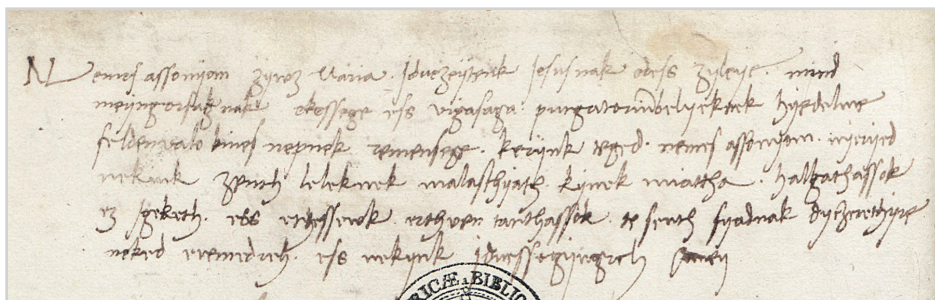 Nemes assonyom zywz Maria Iduezeytenk Jesusnak edess zyleye. mind
menyngorsagnak ekessege ess vigasaga purgatoriumbelyeknek
felden valo bines nepnek remensege. kerynk teged. nemes assonyom. nyeryed
nekenk zenth leleknek malasthyath. kynek miattha. halgathassok
ez igeketh. ess ertessewk. erthven tarthassok. te senth fyadnak dychereethyre
neked eremedreh. ess nekynk Iduessegyngreh Amen
RICÆ BIBLIO